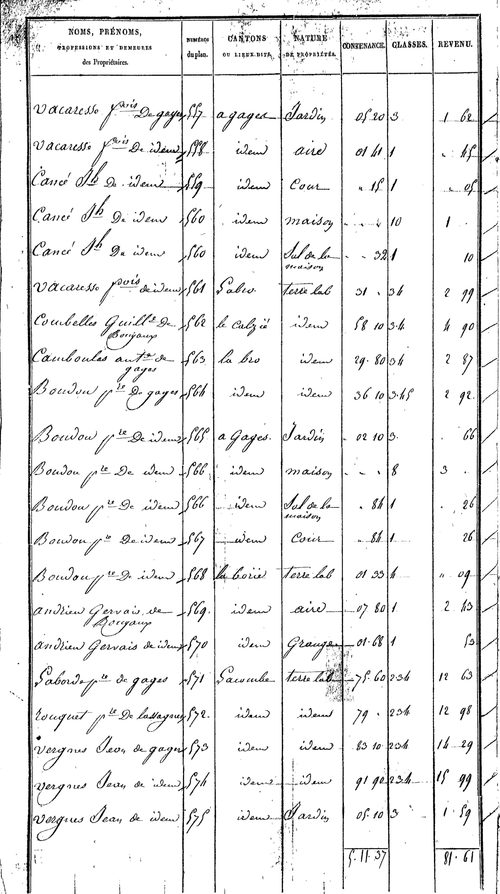 NOMS, PRÉNOMS, PROFESSIONS ET DEMEURES des Propriétaires. NUMÉROS du plan. CANTONS OU LIEUX-DITS. NATURE DE PROPRIÉTÉS. CONTENANCE. CLASSES. REVENU.
Vacaresse fçois De gages 557 a gages Jardin 05 20 3 1 62
Vacaresse fçois De idem 558 idem aire 01 41 1 . 45
Cancé Jh De idem 559 idem Cour . 15 1 . 05
Cancé Jh De idem 560 idem maison . . . 10 1
Cancé Jh De idem 560 idem Sol de la maison . . 32 1 10
Vacaresse fçois de idem 561 terre lab 31 . 34 2 99
Combelles Guill.e De Bougaux 562 le calzié idem 58 10 3.4 4 90
Camboulas ant.e de gages 563 la bro idem 29. 80 34 2 87
Boudou p.re De gages 564 idem idem 36 10 3.45 2 92.
Boudou p.re De idem 565 a gages. Jardin . 02 10 3. . 66
Boudou p.re De idem 566 idem maison . . . 8 3 .
Boudou p.re De idem 566 idem Sol de la maison . 84 1 . 26
Boudou p.re De idem 567 idem Cour . 84 1 26
Boudou p.re De idem 568 la borie terre lab 01 33 4 . 09
andrieu Gervais de Bougaux 569. idem aire 07 80 1 2 43
andrieu Gervais de idem 570 idem Grange 01. 68 1 53
Laborde p.re de gages 571 Lacombe terre lab 75. 60 234 12 63
rouquet p.re De lassagnes 572 idem idem 79 . 234 12 98
vergnes Jean de gages 573 idem idem 83 10 234 14 29
vergnes Jean de idem 574 idem idem 91 90 234 15 99
vergnes Jean de idem 575 idem Jardin 05. 10 3 1 59
5. 11. 37 81. 61